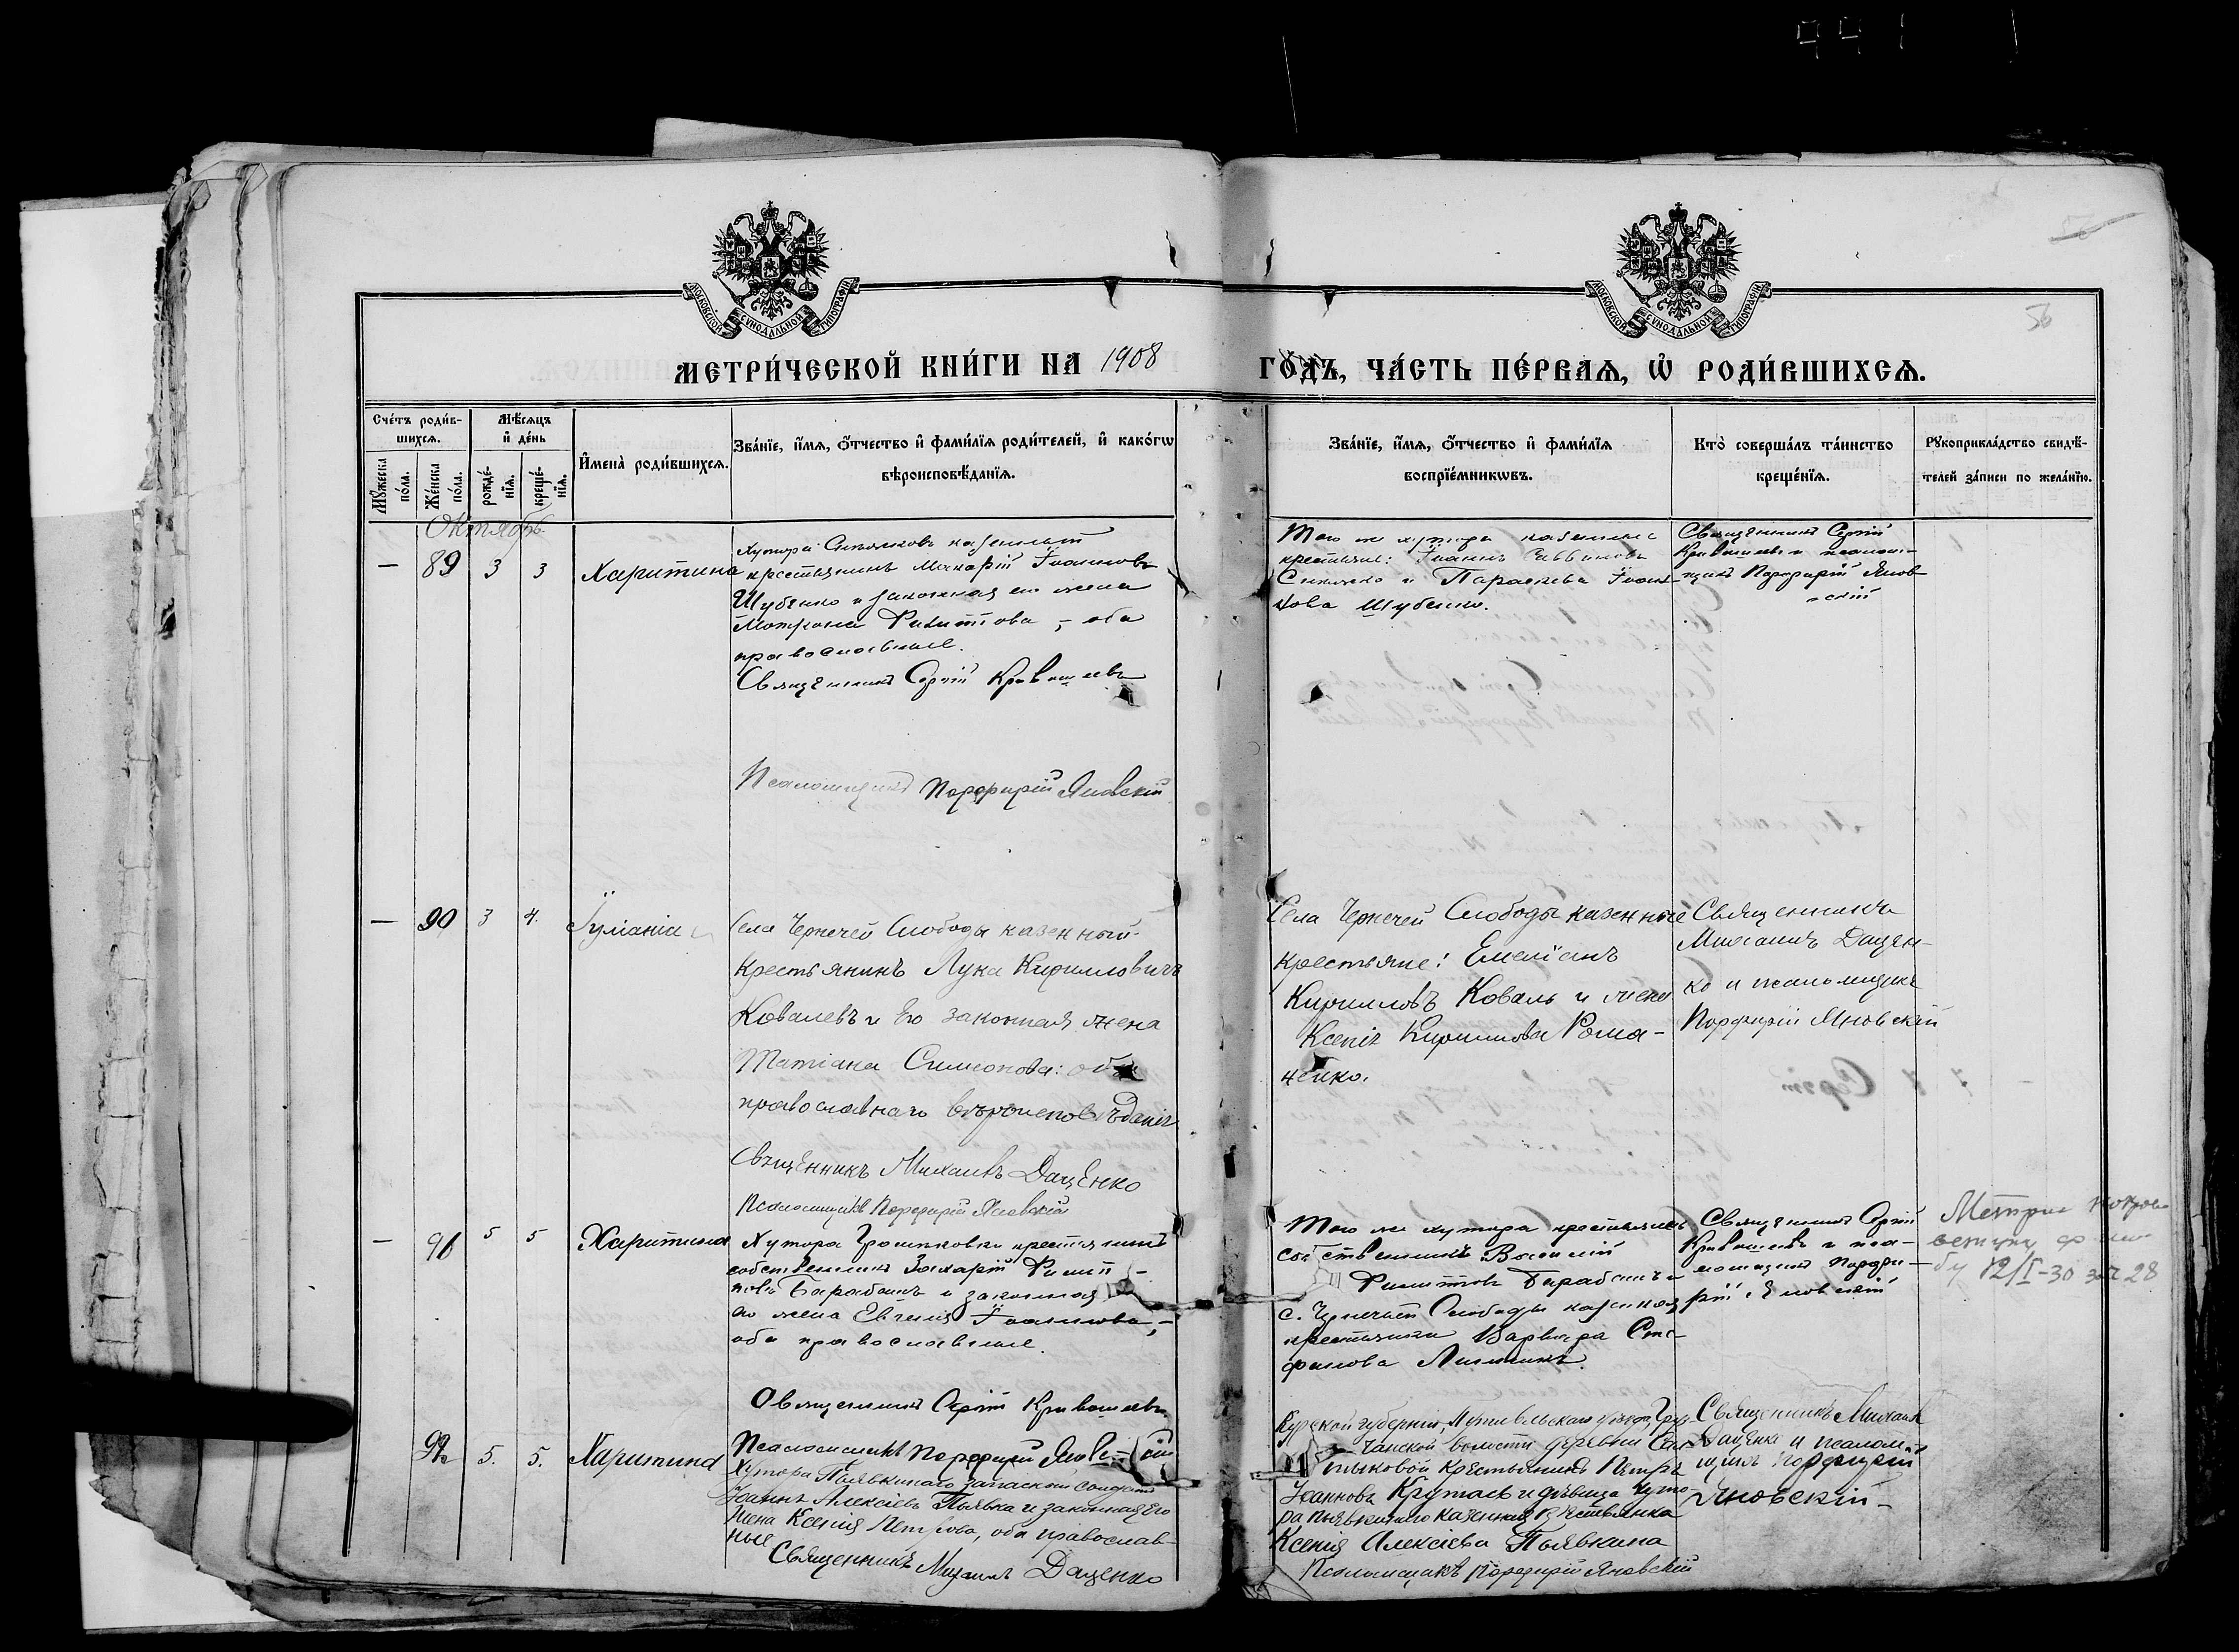 991
56
56
МОСКОВСКОЙ СѴНОДАЛЬНОЙ ТИПОГРАФІИ
МОСКОВСКОЙ СѴНОДАЛЬНОЙ ТИПОГРАФІИ
МЕТРИ́ЧЕСКОЙ КНИ́ГИ НА 1908 ГО́ДЪ, ЧА́СТЬ ПЕ́РВАЯ, Ѡ РОДИ́ВШИХСЯ.
Сче́тъ роди́в-
шихся.
Мѣсяцъ
и де́нь
Мꙋжеска по́ла.
Же́нска по́ла.
рожде́-
нїя.
креще́-
нїя.
Имена̀ роди́вшихся.
Зва́нїе, и́мя, о́тчество и фами́лїя роди́телей, и како́гѡ
вѣроисповѣ́данїя.
Зва́нїе, и́мя, о́тчество и фами́лїя
воспрїе́мникѡвъ.
Кто̀ соверша́лъ та́инство
креще́нїя.
Рꙋкоприкла́дство свидѣ́-
телей за́писи по жела́нїю.
Октябрь
— 89 3 3 Харитина
Хутора казенный
крестьянинъ Макарій Іоанновъ
Шубенко и законная его жена
Матрона Филиппова, – оба
православные.
Священникъ Сергій
Псаломщикъ Порфирій Яновскій
Того же хутора казенные
крестьяне: Іоаннъ Саввиновъ
и Параскева Іоан-
нова Шубенко.
Священникъ Сергій
и псалом-
щикъ Порфирій Янов-
скій
— 90 3 4. Іуліанія
Села Чернечей Слободы казенный
крестьянинъ Лука Кирилловичъ
Ковалевъ и Его законная жена
Татіана Симеонова: оба
православнаго вѣроисповѣданія
Священникъ Михаилъ Даценко
Псаломщикъ Порфирій Яновскій
Села Чернечей Слободы казенные
крестьяне: Емеліанъ
Кирилловъ Коваль и жена
Ксенія Кириллова Рома-
ненко.
Священникъ
Михаилъ Дацен-
ко и псаломщикъ
Порфирій Яновскій
— 91 5 5 Харитина
Хутора крестьянинъ
собственникъ Захарій Филип-
повъ Барабашъ и законная
его жена Евгенія Іоаннова, –
оба православные.
Священникъ Сергій
Псаломщикъ Порфирій Яновскій
Того же хутора крестьянинъ
собственникъ Василій
Филипповъ Барабашъ и
с. Чернечей Слободы казенная
крестьянка Варвара Сте-
фанова
Священникъ Сергій
и пса-
ломщикъ Порфи-
рій Яновскій
12/I-30 28
92 5. 5. Харитина
Хутора Пьявкинаго запасной солдатъ
Іоаннъ Алексіевъ Пьявка и законная Его
жена Ксенія Петрова, оба православ-
ные
Священникъ Михаилъ Даценко
Курской губерніи, Путивльскаго уѣзда,
волости деревни
крестьянинъ Петръ
Іоанновъ и дѣвица Хуто-
ра Пьявкинаго казенная крестьянка
Ксенія Алексіева Пьявкина
Псаломщикъ Порфирій Яновскій
Священникъ Михаилъ
Даценко и псалом-
щикъ Порфирій
Яновскій –